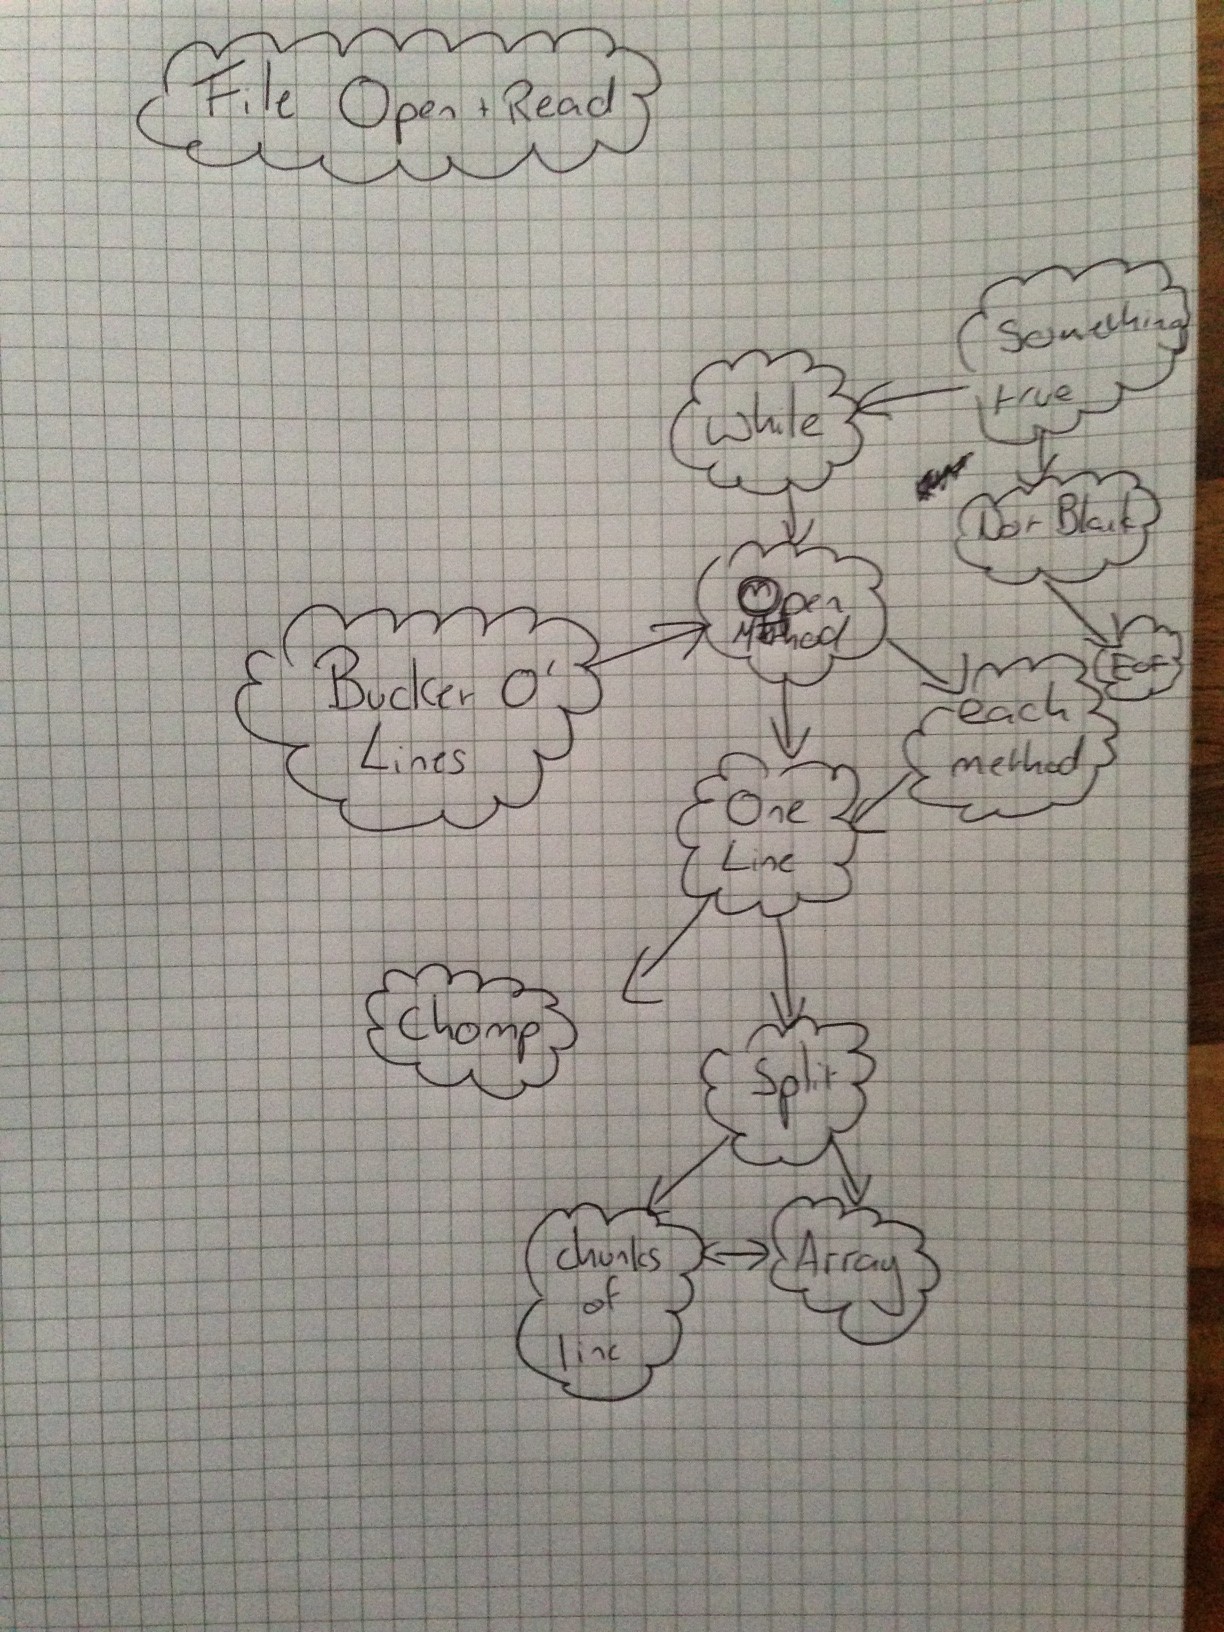 File Open + Read
Something
true
While
Not Blank
Open
Method
EOF
Bucket O'
Lines
each
method
One
Line
Chomp
Split
chunks
of
line
Array